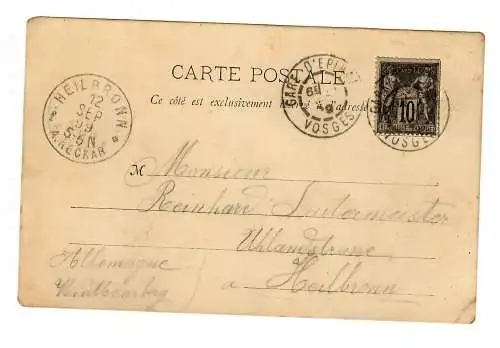 CARTE POSTALE
Ce côté est exclusivement à l'adresse
HEILBRONN
12
SEP
99
5-6 N
A. NECKAR
GARE D'EPINAL
VOSGES
10
M Monsieur
Reinhard
Uhlandstrasse
à Heilbronn
Allemagne